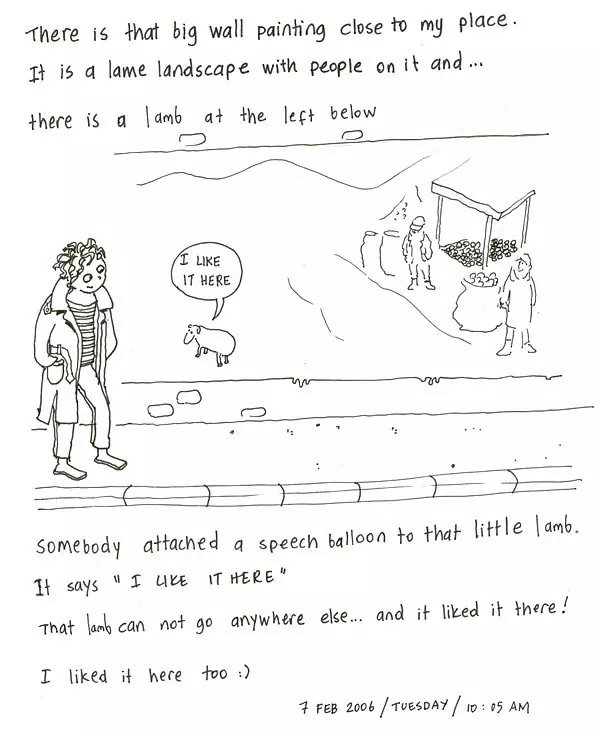 There is that big wall painting close to my place.
It is a lame landscape with people on it and...
there is a lamb at the left below
I LIKE
IT HERE
somebody attached a speech balloon to that little lamb.
It says "I LIKE IT HERE"
That lamb can not go anywhere else... and it liked it there!
I liked it here too :)
7 FEB 2006 / TUESDAY / 10:05 AM